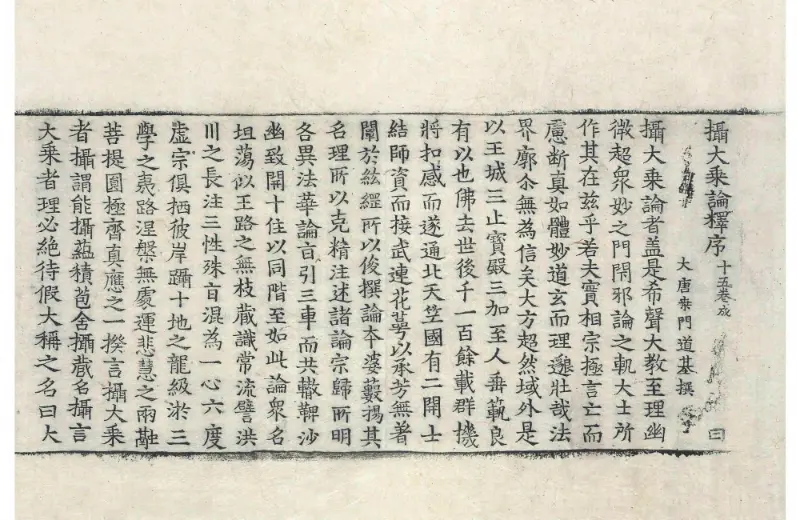 攝大乘論釋序 十五卷成
大唐桒門道基撰 曰
攝大乘論者盖是希聲大教至理幽
微超衆妙之門閇邪論之軌大士所
作其在兹乎若夫實相宗極言亡而
慮断真如體妙道玄而理邈壯哉法
界廓尒無為信矣大方超然域外是
以王城三止寶殿三加至人垂範良
有以也佛去世後千一百餘載群機
將扣感而遂通北天笁國有二開士
結師資而接武連花萼以承芳無著
闡於紘經所以俊撰論夲婆薮揚其
名理所以克精注述諸論宗歸所明
各異法華論㫖引三車而共轍鞞沙
幽致開十住以同階至如此論衆名
坦荡似王路之無枝蔵識常流譬洪
川之長注三性殊㫖混為一心六度
虚宗俱栖彼岸躡十地之龍級淤三
學之夷路涅槃無處運悲慧之兩融
菩提圓極齊真應之一揆言攝大乘
者攝謂能攝藴積苞含攝蔵名攝言
大乘者理必絶待假大稱之名曰大